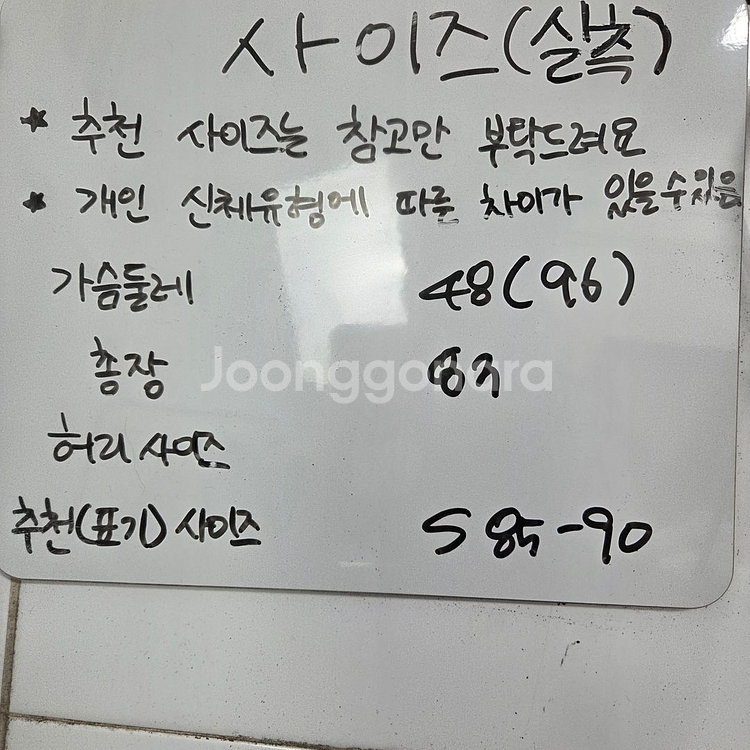 사이즈(실측)
* 추천 사이즈는 참고만 부탁드려요
* 개인 신체유형에 따른 차이가 있을수있음
가슴둘레 48(96)
총장
허리사이즈
추천(표기)사이즈 S 85-90
Joonggonara